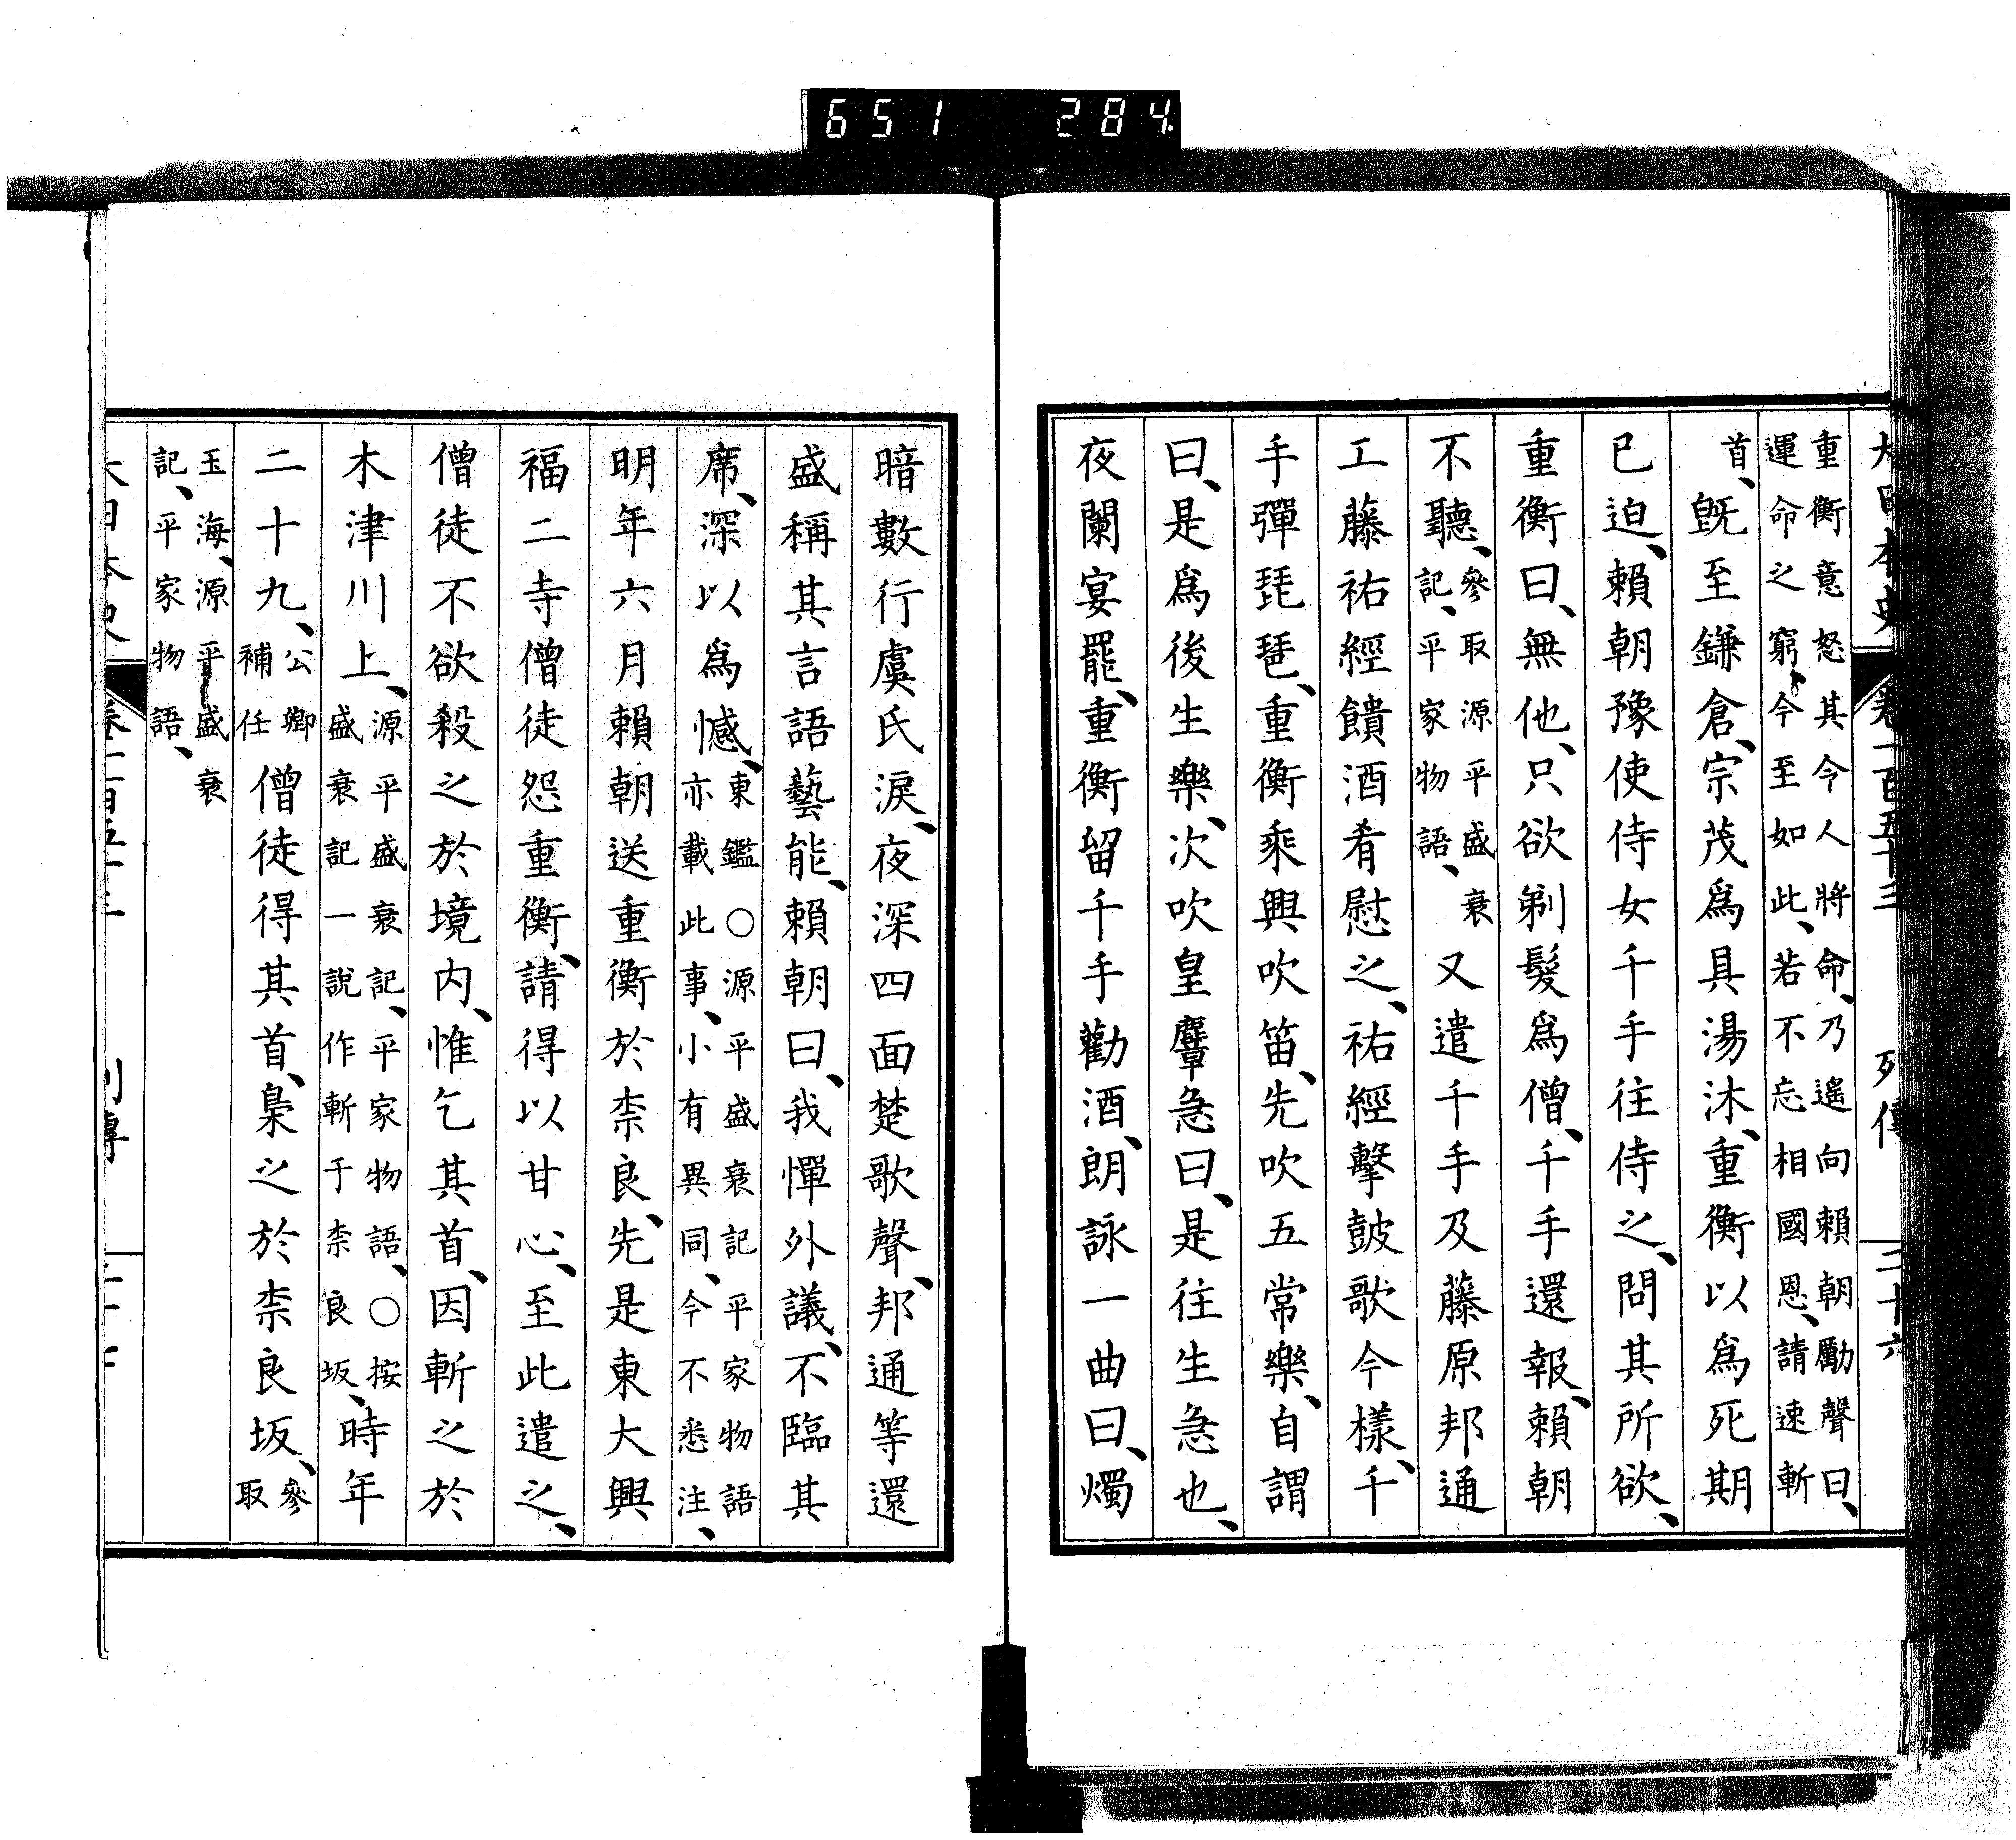 651 284
大日本史 卷一百五十三 列傳 二十六
重衡意怒其令人將命、乃遙向賴朝勵聲曰、
運命之窮、今至如此、若不忘相國恩、請速斬
首、既至鎌倉、宗茂爲具湯沐、重衡以爲死期
已迫、賴朝豫使侍女千手往侍之、問其所欲、
重衡曰、無他、只欲剃髮爲僧、千手還報、賴朝
不聽、參取源平盛衰
記、平家物語、又遣千手及藤原邦通
工藤祐經饋酒肴慰之、祐經擊鼓歌今樣、千
手彈琵琶、重衡乘興吹笛、先吹五常樂、自謂
曰、是爲後生樂、次吹皇麞急曰、是往生急也、
夜闌宴罷、重衡留千手勸酒、朗詠一曲曰、燭
暗數行虞氏淚、夜深四面楚歌聲、邦通等還
盛稱其言語藝能、賴朝曰、我憚外議、不臨其
席、深以爲憾、東鑑○源平盛衰記平家物語
亦載此事、小有異同、今不悉注、
明年六月賴朝送重衡於柰良、先是東大興
福二寺僧徒怨重衡、請得以甘心、至此遣之、
僧徒不欲殺之於境内、惟乞其首、因斬之於
木津川上、源平盛衰記、平家物語、○按
盛衰記一說作斬于柰良坂、時年
二十九、公卿
補任僧徒得其首、梟之於柰良坂、參
取
玉海、源平盛衰
記、平家物語、
大日本史 卷一百五十三 列傳 二十七